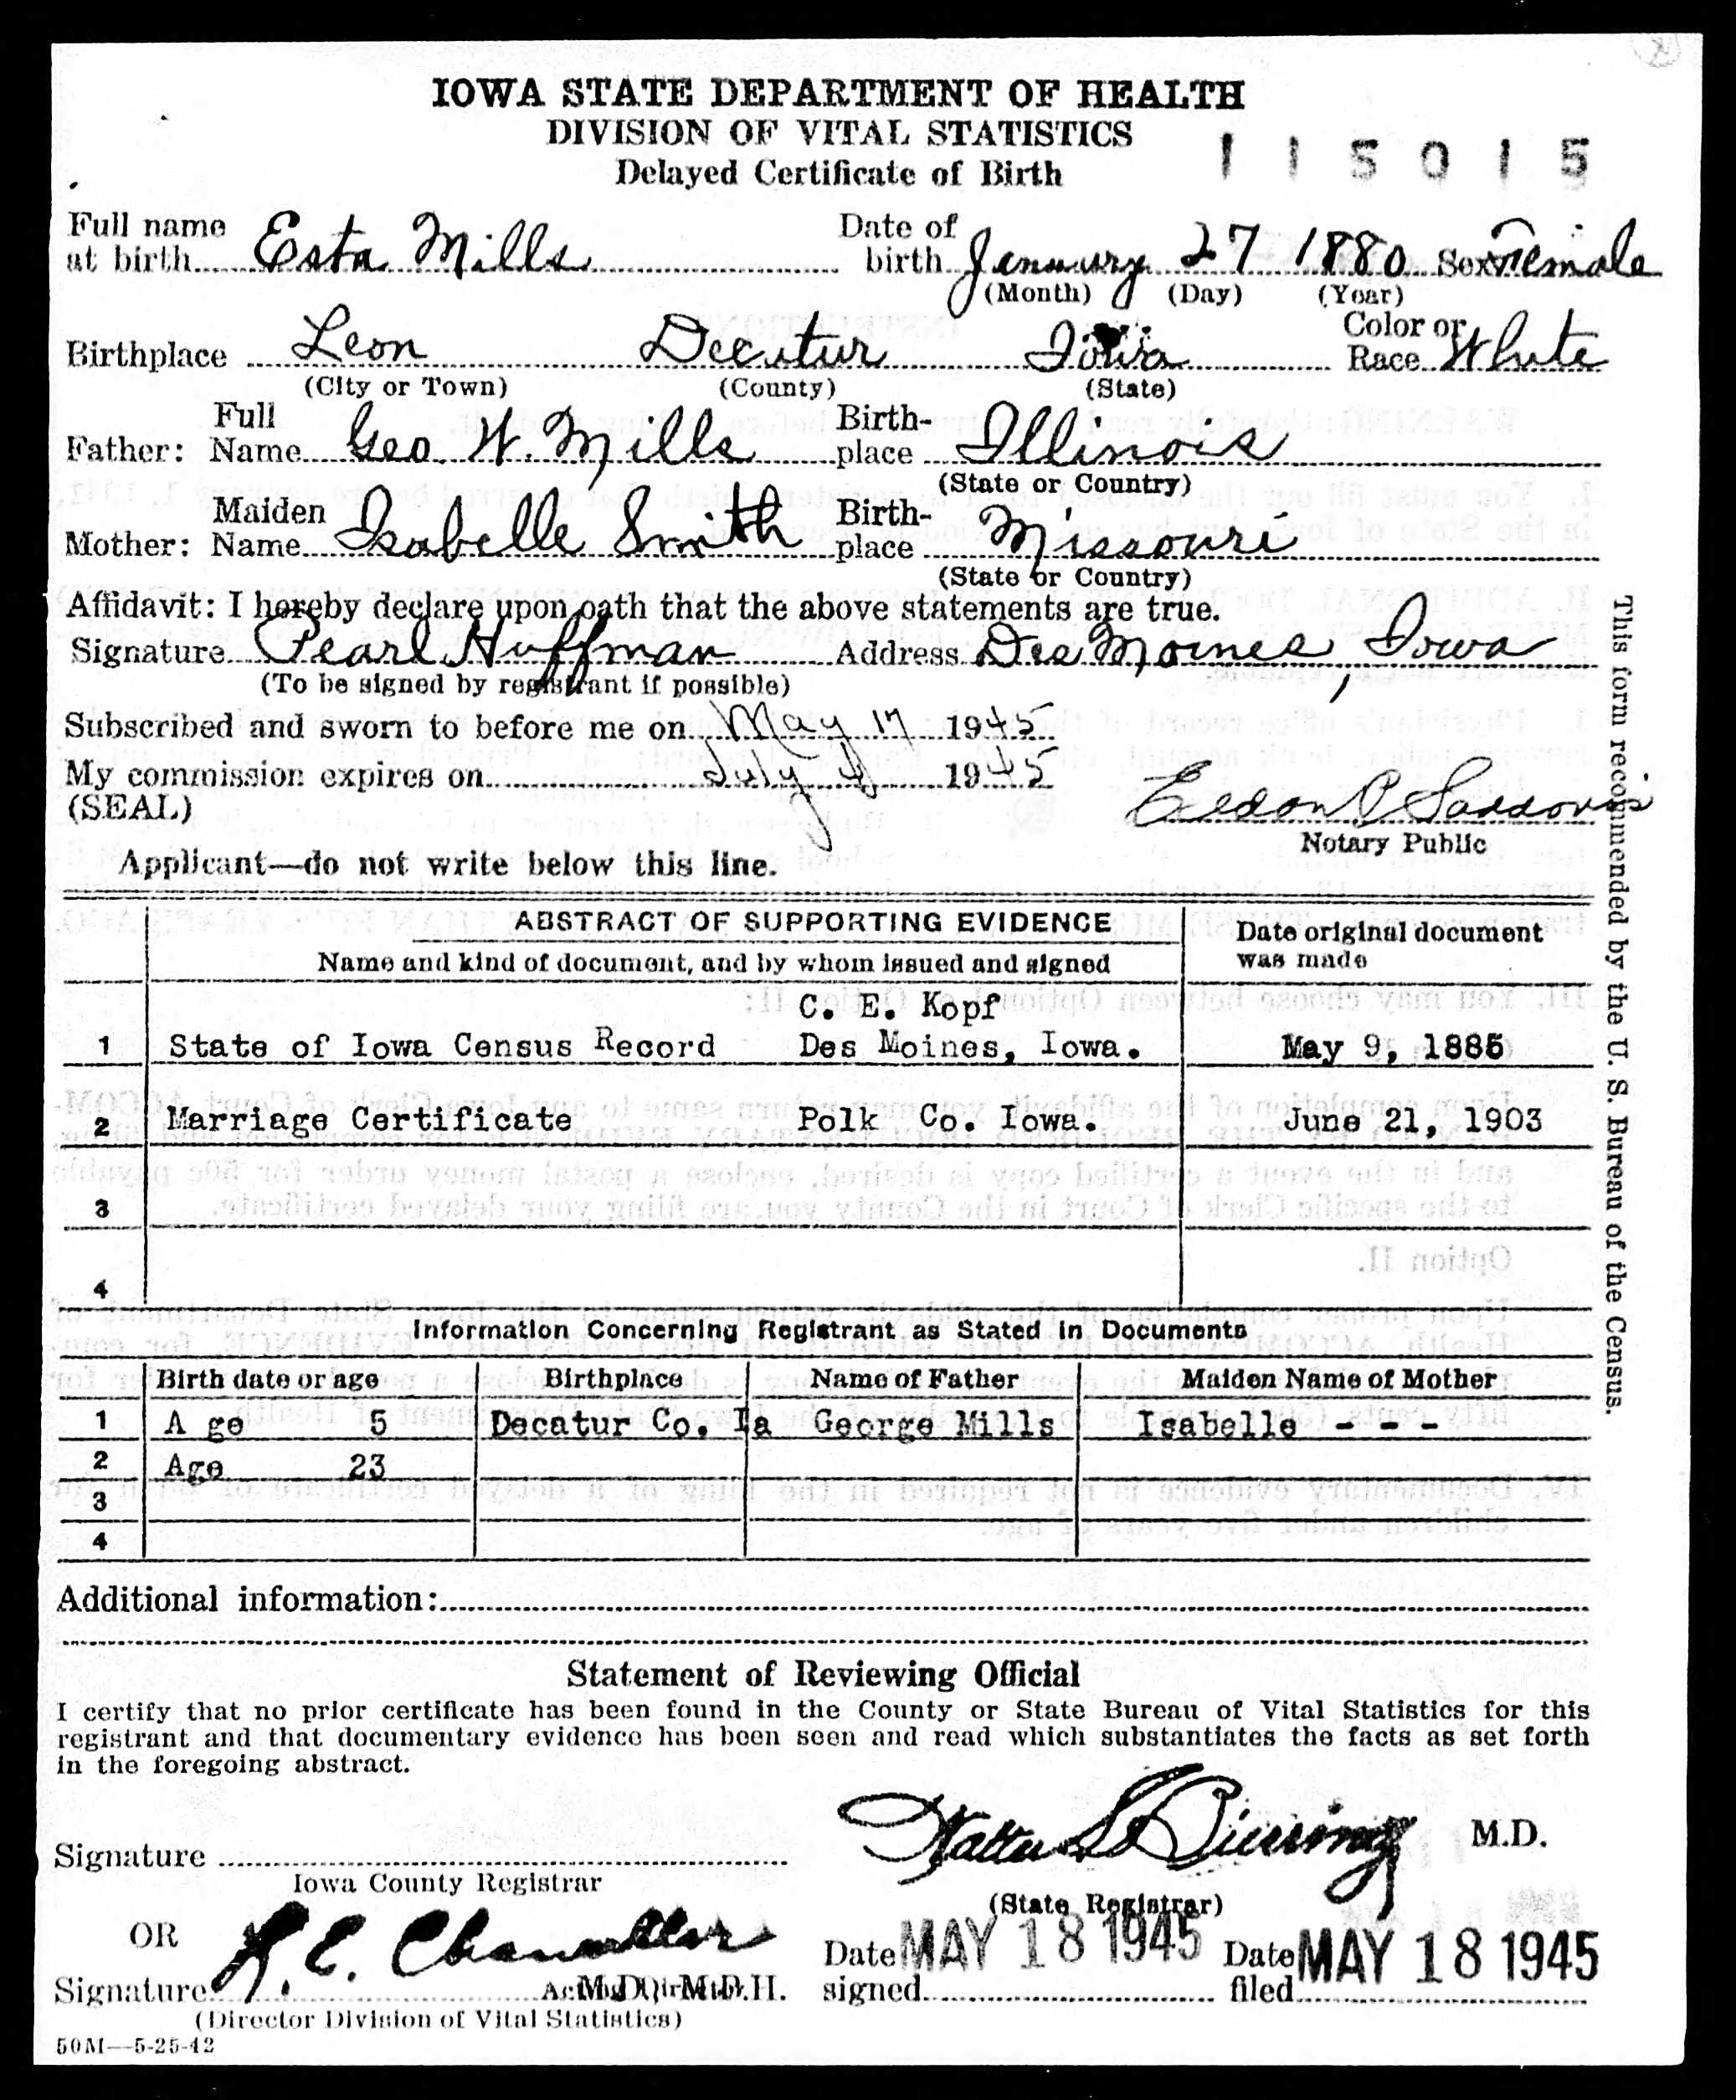 IOWA STATE DEPARTMENT OF HEALTH
DIVISION OF VITAL STATISTICS
Delayed Certificate of Birth
115015
Full name at birth Esta Mills Date of birth January 27 1880 Sex Female
(Month) (Day) (Year)
Birthplace Leon Decatur Iowa Color or Race White
(City or Town) (County) (State)
Father: Full Name Geo. W. Mills Birth-place Illinois
(State or Country)
Mother: Maiden Name Isabelle Smith Birth-place Missouri
(State or Country)
Affidavit: I hereby declare upon oath that the above statements are true.
Signature Pearl Huffman Address Des Moines, Iowa
(To be signed by registrant if possible)
Subscribed and sworn to before me on May 17 1945
My commission expires on July 4 1945
(SEAL)
Notary Public
Applicant—do not write below this line.
ABSTRACT OF SUPPORTING EVIDENCE
Name and kind of document, and by whom issued and signed
Date original document was made
C. E. Kopf
1 State of Iowa Census Record Des Moines, Iowa. May 9, 1885
2 Marriage Certificate Polk Co. Iowa. June 21, 1903
3
4
Information Concerning Registrant as Stated in Documents
Birth date or age Birthplace Name of Father Maiden Name of Mother
1 A ge 5 Decatur Co. Ia George Mills Isabelle - - -
2 Age 23
3
4
Additional information:
Statement of Reviewing Official
I certify that no prior certificate has been found in the County or State Bureau of Vital Statistics for this
registrant and that documentary evidence has been seen and read which substantiates the facts as set forth
in the foregoing abstract.
Signature
Iowa County Registrar
Walter L Bierring M.D.
(State Registrar)
OR
Signature L. C. Chandler
(Director Division of Vital Statistics)
Date signed MAY 18 1945 Date filed MAY 18 1945
50M—5-25-42
This form recommended by the U. S. Bureau of the Census.